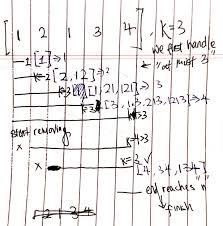 [1 2 1 3 4], k=3
we first handle
"at most 3"
1 [1] ⇒ 1
k=2 [2, 12] ⇒ 2
k=2 [1, 21, 121] ⇒ 3
k=3 [3, 13, 213, 1213] ⇒ 4
k=4>3
start removing
x k=4>3
x k=3 ✓
[4, 34, 134]
end reaches "n"
↳ finish